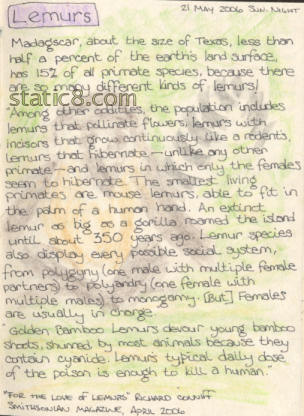 Lemurs
21 MAY 2006 SUN. NIGHT
Madagascar, about the size of Texas, less than
half a percent of the earth's land surface,
has 15% of all primate species, because there
are so many different kinds of lemurs!
static8.com
"Among other oddities, the population includes
lemurs that pollinate flowers, lemurs with
incisors that grow continuously like a rodents,
lemurs that hibernate—unlike any other
primate—and lemurs in which only the females
seem to hibernate. The smallest living
primates are mouse lemurs, able to fit in
the palm of a human hand. An extinct
lemur big as a gorilla roamed the island
until about 350 years ago. Lemur species
also display every possible social system,
from polygyny (one male with multiple female
partners) to polyandry (one female with
multiple males) to monogamy. [But] Females
are usually in charge.
Golden Bamboo Lemurs devour young bamboo
shoots, shunned by most animals because they
contain cyanide. Lemurs typical daily dose
of the poison is enough to kill a human."
"FOR THE LOVE OF LEMURS" RICHARD CONNIFF
SMITHSONIAN MAGAZINE, APRIL 2006